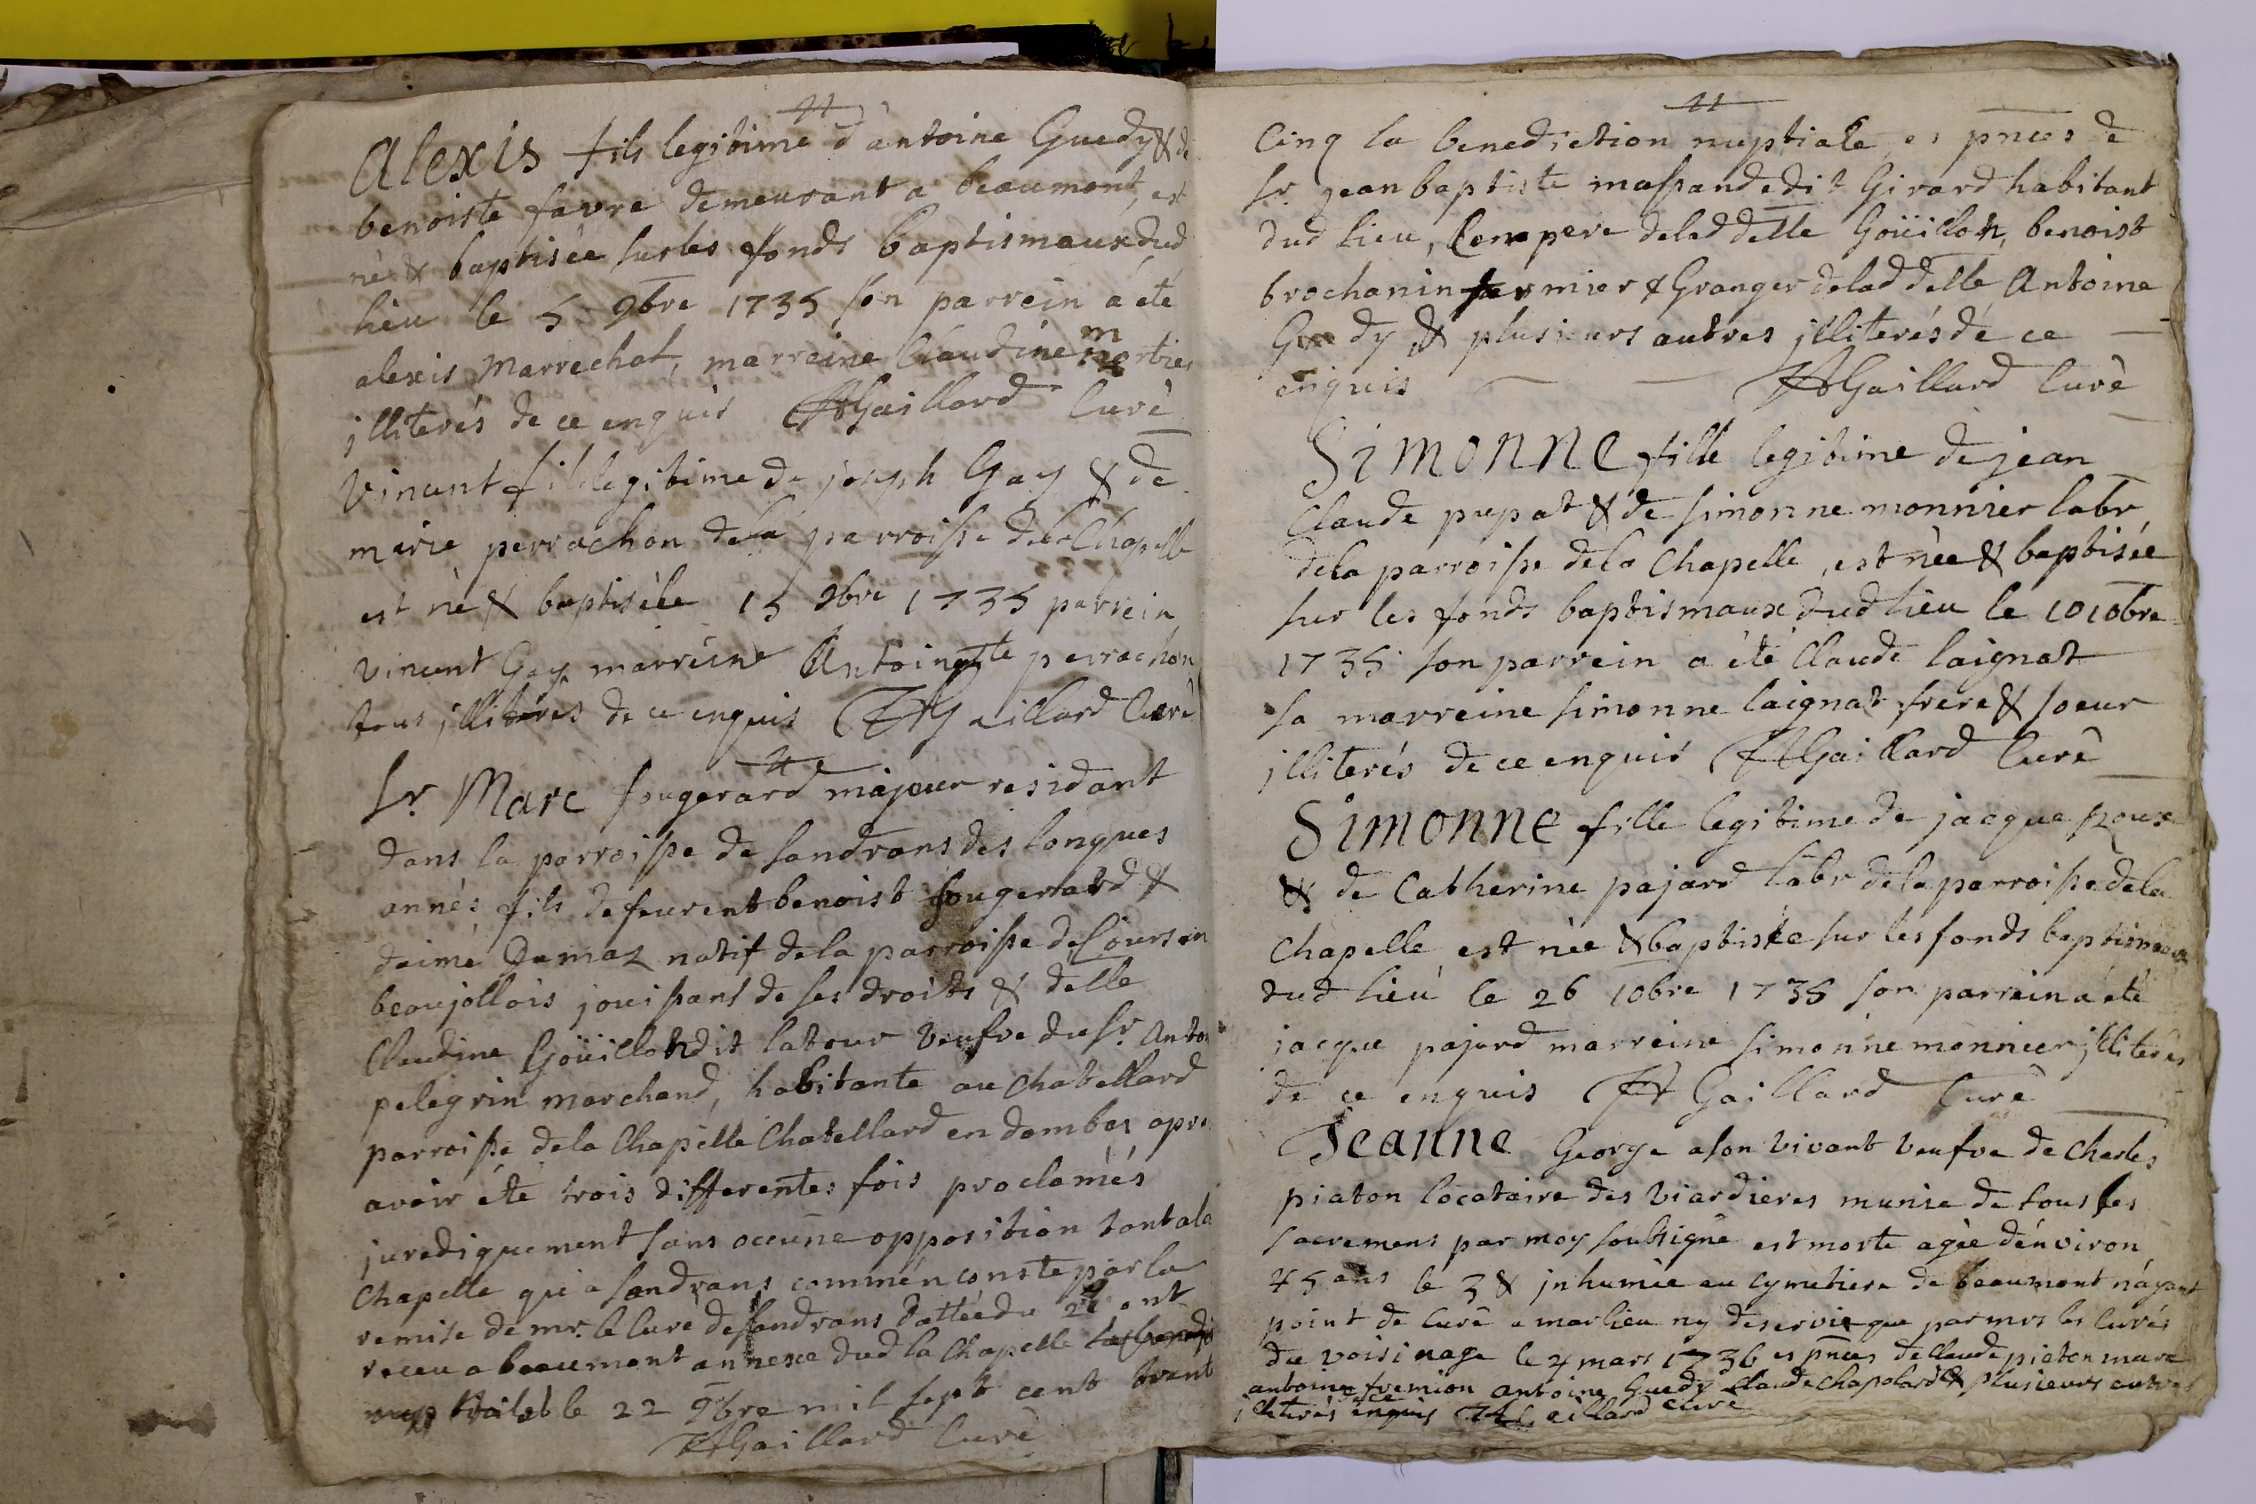 Alexis fils legitime d'antoine Guedy & de
benoiste favre demeurant a beaumont, est
né & baptisée sur les fonds baptismaux dud
lieu le 5 9bre 1735 son parrein a été
alexis Marrechal, marreine Claudine
illiterés de ce enquis Gaillard Curé
Vincent fils legitime de joseph Gay & de
marie perrachon de la parroisse de la Chapelle
est né & baptisé le 15 9bre 1735 parrein
Vincent Gay marreine Antoinette perrachon
tous illiterés de ce enquis Gaillard Curé
Sr. Marc fougerard majeur residant
dans la parroisse de sandrans des longues
annés fils de feurent benoist fougerard &
daimé Damaz natif de la parroisse de Cours en
beaujollois jouissant de ses droits & delle
Claudine Goüillon dit latour veufve du Sr. Anto
pelegrin marchand, habitante au Chatellard
parroisse de la Chapelle Chatellard en dombes apre
avoir été trois differentes fois proclamés
juridiquement sans occune opposition tant a la
Chapelle qu'a sandrans comme n conste par la
remise de mr. le Curé de sandrans dattée du ont
receu a beaumont annexe dud la Chapelle
le 22 9bre mil sept cent trent
Gaillard Curé
Cinq la benediction nuptiale es pnces de
Sr. jean baptiste massande dit Girard habitant
dud lieu, pere de lad delle Goüillon, benoist
brochanin fermier & Granger de lad delle Antoine
Guedy & plusieurs autres illiterés de ce
enquis Gaillard Curé
Simonne fille legitime de jean
Claude pupat & de simonne monnier labr
de la parroisse de la Chapelle, est née & baptisée
sur les fonds baptismaux dud lieu le 10 10bre
1735 son parrein a été Claude laignat
sa marreine simonne laignat frere & soeur
illiterés de ce enquis Gaillard Curé
Simonne fille legitime de jacque
& de Catherine pajard labr de la parroisse de la
Chapelle est née & baptisée sur les fonds baptismaux
dud lieu le 26 10bre 1735 son parrein a été
jacque pajard marreine simonne monnier illiterés
de ce enquis Gaillard Curé
Jeanne George a son vivant veufve de Charles
piaton locataire des Viardieres munie de tous ses
sacremens par moy soubsigné est morte agée d'énviron
45 ans le 3 & inhumée au cymetiere de beaumont n'ayant
point de Curé a marlieu ny deservie que par mrs les Curés
du voisinage le 4 mars 1736 es pnces de Claude piaton
antoine fremion antoine Guedy Claude Chapolard & plusieurs autres
illiterés de ce enquis Gaillard Curé